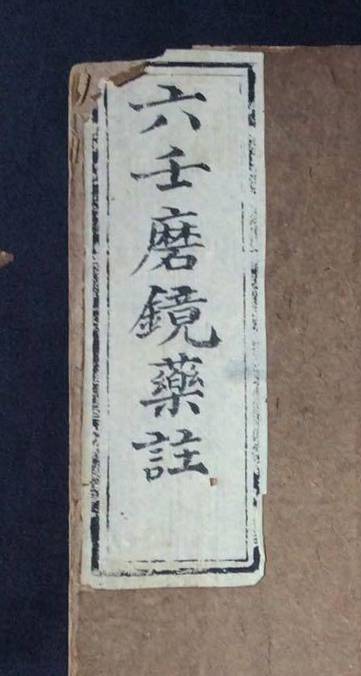 六壬磨鏡藥註